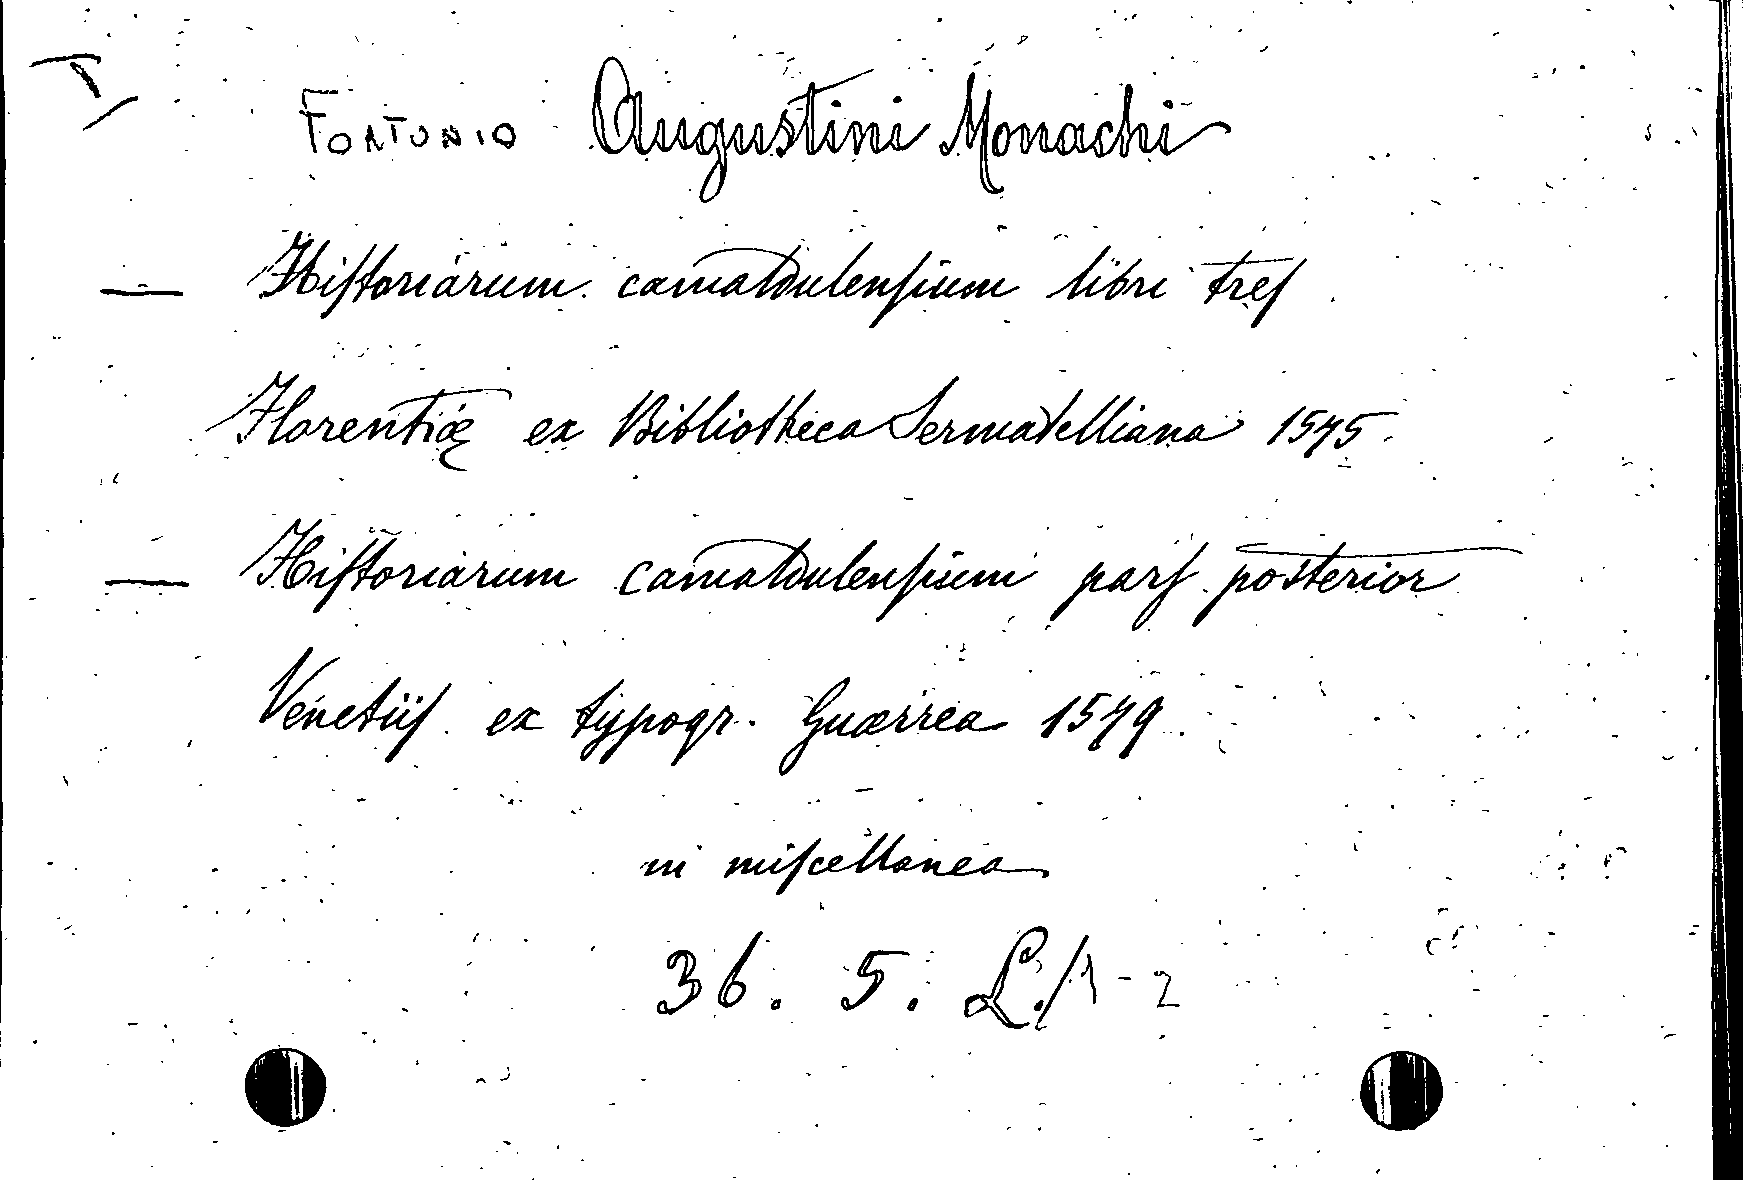 Fortunio Augustini Monachi
— Hiſtoriarum camaldulenſium libri treſ
Florentiæ ex Bibliotheca Sermatelliana 1575.
— Hiſtoriarum camaldulenſium parſ posterior
Venetiiſ ex typogr. Guærrea 1579
in miſcellanea
36. 5. L./1-2